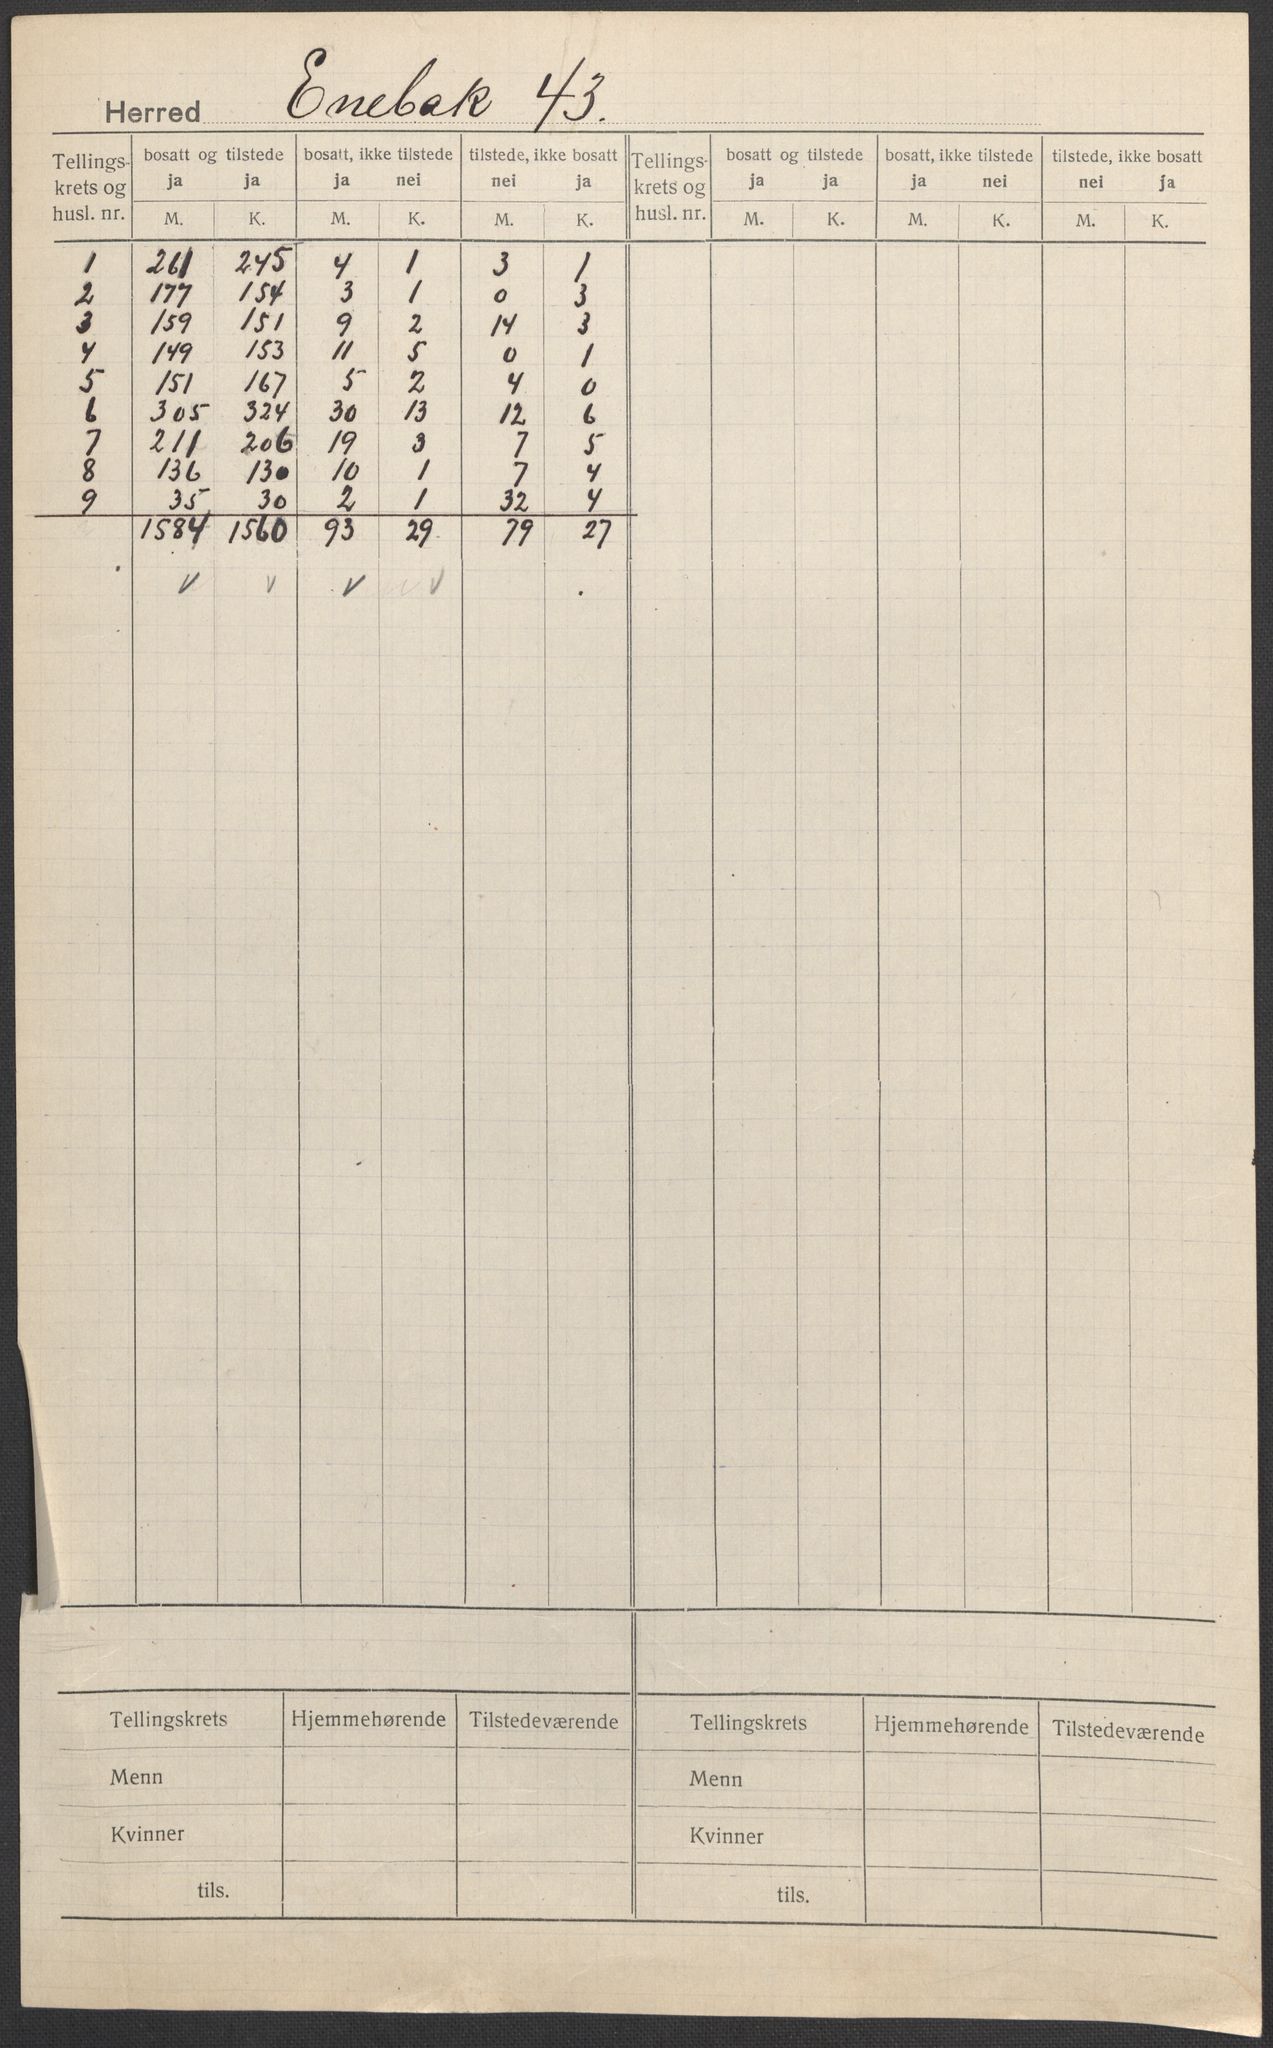 Herred Enebak 43.
Tellings- krets og husl. nr. | bosatt og tilstede | bosatt, ikke tilstede | tilstede, ikke bosatt | Tellings- krets og husl. nr. | bosatt og tilstede | bosatt, ikke tilstede | tilstede, ikke bosatt
ja ja | ja nei | nei ja | ja ja | ja nei | nei ja
M. K. M. K. M. K. M. K. M. K. M. K.
1 261 245 4 1 3 1
2 177 154 3 1 0 3
3 159 151 9 2 14 3
4 149 153 11 5 0 1
5 151 167 5 2 4 0
6 305 324 30 13 12 6
7 211 206 19 3 7 5
8 136 130 10 1 7 4
9 35 30 2 1 32 4
1584 1560 93 29 79 27
Tellingskrets Hjemmehørende Tilstedeværende Tellingskrets Hjemmehørende Tilstedeværende
Menn Menn
Kvinner Kvinner
tils. tils.